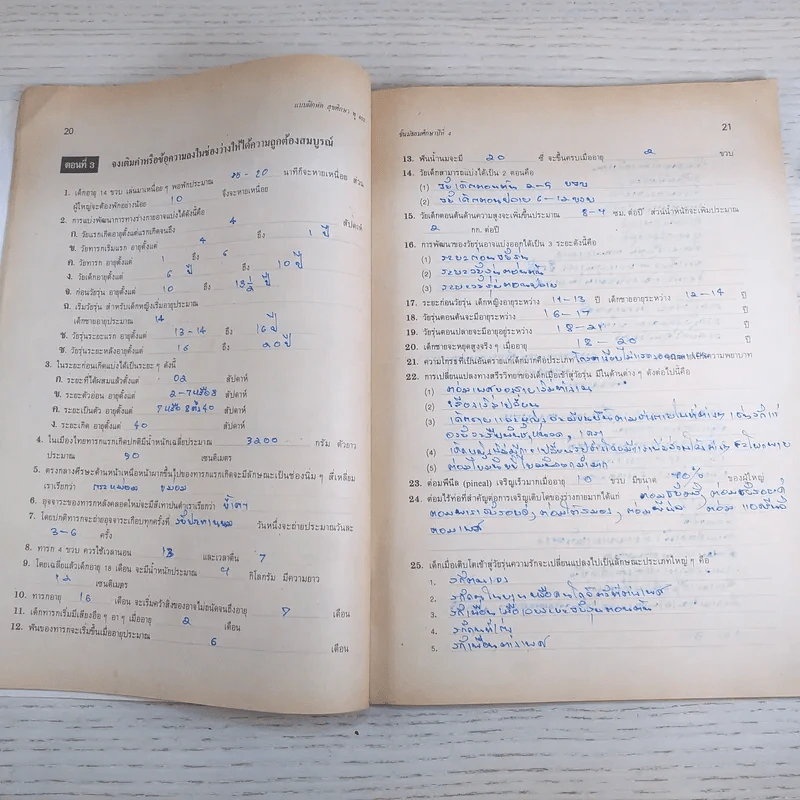 20
แบบฝึกหัด สุขศึกษา
ตอนที่ 3 จงเติมคำหรือข้อความลงในช่องว่างให้ได้ความถูกต้องสมบูรณ์
1. เด็กอายุ 14 ขวบ เล่นมาเหนื่อย ๆ พอพักประมาณ 15 - 20 นาทีก็จะหายเหนื่อย ส่วน
ผู้ใหญ่จะต้องพักอย่างน้อย 10 จึงจะหายเหนื่อย
2. การแบ่งพัฒนาการทางร่างกายอาจแบ่งได้ดังนี้คือ
ก. วัยแรกเกิดอายุตั้งแต่แรกเกิดจนถึง 4 สัปดาห์
ข. วัยทารกเริ่มแรก อายุตั้งแต่ 4 ถึง 1 ปี
ค. วัยทารก อายุตั้งแต่ 1 ถึง 6
ง. วัยเด็กอายุตั้งแต่ 6 ปี ถึง 10 ปี
จ. ก่อนวัยรุ่น อายุตั้งแต่ 10 ถึง 13 1/2 ปี
ฉ. เริ่มวัยรุ่น สำหรับเด็กหญิงเริ่มอายุประมาณ
เด็กชายอายุประมาณ 14
ช. วัยรุ่นระยะแรก อายุตั้งแต่ 13-14 ถึง 16 ปี
ซ. วัยรุ่นระยะหลังอายุตั้งแต่ 16 ถึง 20 ปี
3. ในระยะก่อนเกิดแบ่งได้เป็นระยะ ๆ ดังนี้
ก. ระยะที่ได้ผสมแล้วตั้งแต่ 02 สัปดาห์
ข. ระยะตัวอ่อน อายุตั้งแต่ 2-7 หรือ 8 สัปดาห์
ค. ระยะเป็นตัว อายุตั้งแต่ 7 หรือ 8 ถึง 40 สัปดาห์
ง. ระยะเกิด อายุตั้งแต่ 40 สัปดาห์
4. ในเมืองไทยทารกแรกเกิดปกติมีน้ำหนักเฉลี่ยประมาณ 3200 กรัม ตัวยาว
ประมาณ 50 เซนติเมตร
5. ตรงกลางศีรษะด้านหน้าเหนือหน้าผากขึ้นไปของทารกแรกเกิดจะมีลักษณะเป็นช่องนิ่ม ๆ สี่เหลี่ยม
เราเรียกว่า กระหม่อม
6. อุจจาระของทารกหลังคลอดใหม่จะมีสีเทาปนดำเราเรียกว่า ขี้เทา
7. โดยปกติทารกจะถ่ายอุจจาระเกือบทุกครั้งที่ รับประทานนม วันหนึ่งจะถ่ายประมาณวันละ
3-6 ครั้ง
8. ทารก 4 ขวบ ควรใช้เวลานอน 13 และเวลาตื่น 7
9. โดยเฉลี่ยแล้วเด็กอายุ 18 เดือน จะมีน้ำหนักประมาณ 9 กิโลกรัม มีความยาว
72 เซนติเมตร
10. ทารกอายุ 16 เดือน จะเริ่มคว้าสิ่งของอาจไม่ถนัดจนถึงอายุ 7 เดือน
11. เด็กทารกเริ่มมีเสียงอือ ๆ อา ๆ เมื่ออายุ 2 เดือน
12. ฟันของทารกจะเริ่มขึ้นเมื่ออายุประมาณ 6 เดือน
ชั้นมัธยมศึกษาปีที่ 4
21
13. ฟันน้ำนมจะมี 20 ซี่ จะขึ้นครบเมื่ออายุ 2 ขวบ
14. วัยเด็กสามารถแบ่งได้เป็น 2 ตอนคือ
(1) วัยเด็กตอนต้น 2-5 ขวบ
(2) วัยเด็กตอนปลาย 6-12 ขวบ
15. วัยเด็กตอนต้นด้านความสูงจะเพิ่มขึ้นประมาณ 8-9 ซม. ต่อปี ส่วนน้ำหนักจะเพิ่มประมาณ
2 กก. ต่อปี
16. การพัฒนาของวัยรุ่นอาจแบ่งออกได้เป็น 3 ระยะดังนี้คือ
(1) ระยะก่อนวัยรุ่น
(2) ระยะวัยรุ่นตอนต้น
(3) ระยะวัยรุ่นตอนปลาย
17. ระยะก่อนวัยรุ่น เด็กหญิงอายุระหว่าง 11-13 ปี เด็กชายอายุระหว่าง 12-14 ปี
18. วัยรุ่นตอนต้นจะมีอายุระหว่าง 16-17 ปี
19. วัยรุ่นตอนปลายจะมีอายุอยู่ระหว่าง 18-21 ปี
20. เด็กชายจะหยุดสูงจริง ๆ เมื่ออายุ 18-20 ปี
21. ความโกรธที่เป็นอันตรายแก่เด็กมากคือประเภท เป็นความพยาบาท
22. การเปลี่ยนแปลงทางสรีรวิทยาของเด็กเมื่อเข้าสู่วัยรุ่น มีในด้านต่าง ๆ ดังต่อไปนี้คือ
(1) ต่อมเพศของชายเริ่มทำงาน
(2) เสียงเริ่มเปลี่ยน
(3)
(4)
(5)
23. ต่อมพีนีล (pineal) เจริญเร็วมากเมื่ออายุ 10 ขวบ มีขนาด 90% ของผู้ใหญ่
24. ต่อมไร้ท่อที่สำคัญต่อการเจริญเติบโตของร่างกายมากได้แก่
ต่อมเพศ
25. เด็กเมื่อเติบโตเข้าสู่วัยรุ่นความรักจะเปลี่ยนแปลงไปเป็นลักษณะประเภทใหญ่ ๆ คือ
1. รักตนเอง
2.
3. รักเพื่อน
4.
5. รักเพื่อนต่างเพศ